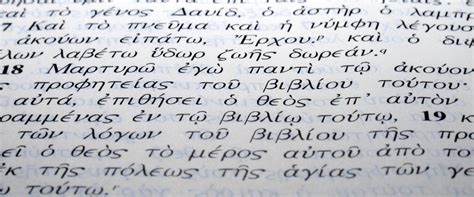 καὶ τὸ γένος Δαυίδ, ὁ ἀστὴρ ὁ λαμπ
7 Καὶ τὸ πνεῦμα καὶ ἡ νύμφη λέγουσ
ἀκούων εἰπάτω, Ἔρχου.ᵖ καὶ ὁ διψ
λων λαβέτω ὕδωρ ζωῆς δωρεάν.ᑫ
18 Μαρτυρῶ ἐγὼ παντὶ τῷ ἀκούον
ς προφητείας τοῦ βιβλίου τούτου·
αὐτά, ἐπιθήσει ὁ θεὸς ἐπ’ αὐτὸν
ραμμένας ἐν τῷ βιβλίῳ τούτῳ, 19 κ
τῶν λόγων τοῦ βιβλίου τῆς προ
εῖ ὁ θεὸς τὸ μέρος αὐτοῦ ἀπὸ το
ἐκ τῆς πόλεως τῆς ἁγίας τῶν γε
ῳ τούτῳ.ʳ